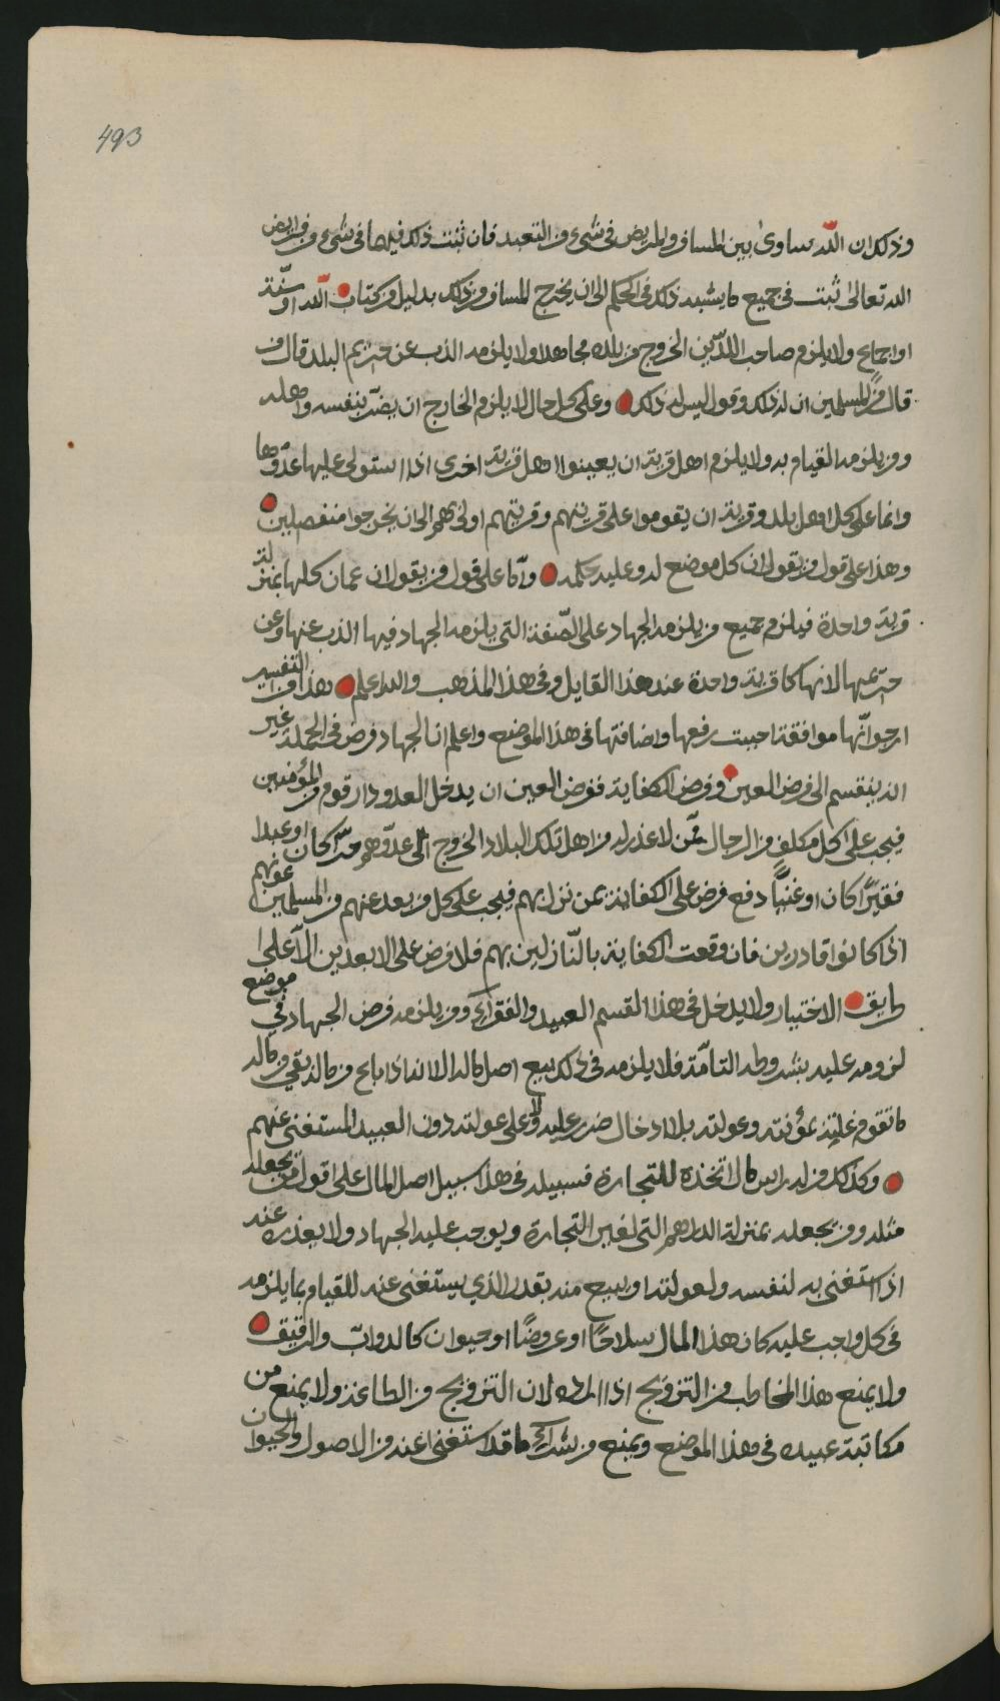 493
وذلك ان الله ساوى بين المسافر والمريض فى شىء من التعبد فان ثبت ذلك فيهما فى شىء من فرايض
الله تعالى ثبت فى جميع ما يشبه ذلك فى الحكم الى ان يخرج المسافر من ذلك بدليل من كتاب الله او سنّة
او اجماع ولا يلزم صاحب الدّين الخروج من بلده مجاهدا ولا يلزمه الذب عن حريم البلد قال من
قال من المسلمين ان له ذلك وقول ليس له ذلك وعلى كل حال لا يلزم الخارج ان يضرّ بنفسه واهله
ومن يلزمه القيام به ولا يلزم اهل قرية ان يعينوا اهل قرية اخرى اذا استولى عليها عدوها
وانما على كل اهل بلد وقرية ان يقوموا على قريتهم وقريتهم اولى بهم الى ان يخرجوا منفصلين
وهذا على قول من يقول ان كل موضع له وعليه حكمه وامّا على قول من يقول ان عمان كلها بمنزلة
قرية واحدة فيلزم جميع من يلزمه الجهاد على الصّفة التى يلزمه الجهاد فيها الذب عنها وعن
حريمها لانها كا قرية واحدة عند هذا القايل وفى هذا المذهب والله اعلم بهذا ومن التفسير
ارجوا انّها موافقة احببت رفعها واضافتها فى هذا الموضع واعلم ان الجهاد فرض فى الجملة غير
انه ينقسم الى فرض العين وفرض الكفاية ففرض العين ان يدخل العدو دار قوم من المؤمنين
فيجب على كل مكلف من الرجال ممّن لا عذر له من اهل تلك البلاد الخروج الى عدوّهم حرّا كان او عبدا
فقيرًا كان او غنيًّا دفع فرض على الكفاية بمن نزل بهم فيجب على كل من بعد عنهم من المسلمين عونهم
اذا كانوا قادرين فان وقعت الكفاية بالنّازلين بهم فلا فرض على الابعدين الّا على
طريق الاختيار ولا يدخل فى هذا القسم العبيد والفقراء ومن يلزمه فرض الجهاد في موضع
لزومه عليه بشروطه التامّة فلا يلزمه فى ذلك بيع اصل ماله الا انه اذا باع من ماله بقي من ماله
ما تقوم غلته بمؤنته وعولته بلا ادخال ضرر عليه ولا على عولته دون العبيد المستغنى عنهم
وكذلك من له راس مال اتخذه للتجارة فسبيله فى هذا سبيل اصل المال على قول من يجعله
مثله ومن يجعله بمنزلة الدراهم التى لغير التجارة ويوجب عليه الجهاد ولا يعذره عنه
اذا استغنى به لنفسه ولعولته او يبيع منه بقدر الذي يستغنى عنه للقيام بما يلزمه
فى كل واجب عليه كان هذا المال سلاحًا او عروضًا او حيوان كالدوابّ والرقيق
ولا يمنع هذا المخاطب من التزويج اذا اراده لان التزويج من الطاعة ولا يمنع من
مكاتبة عبيده فى هذا الموضع ويمنع من شراء ما قد استغنى عنه من الاصول والحيوان